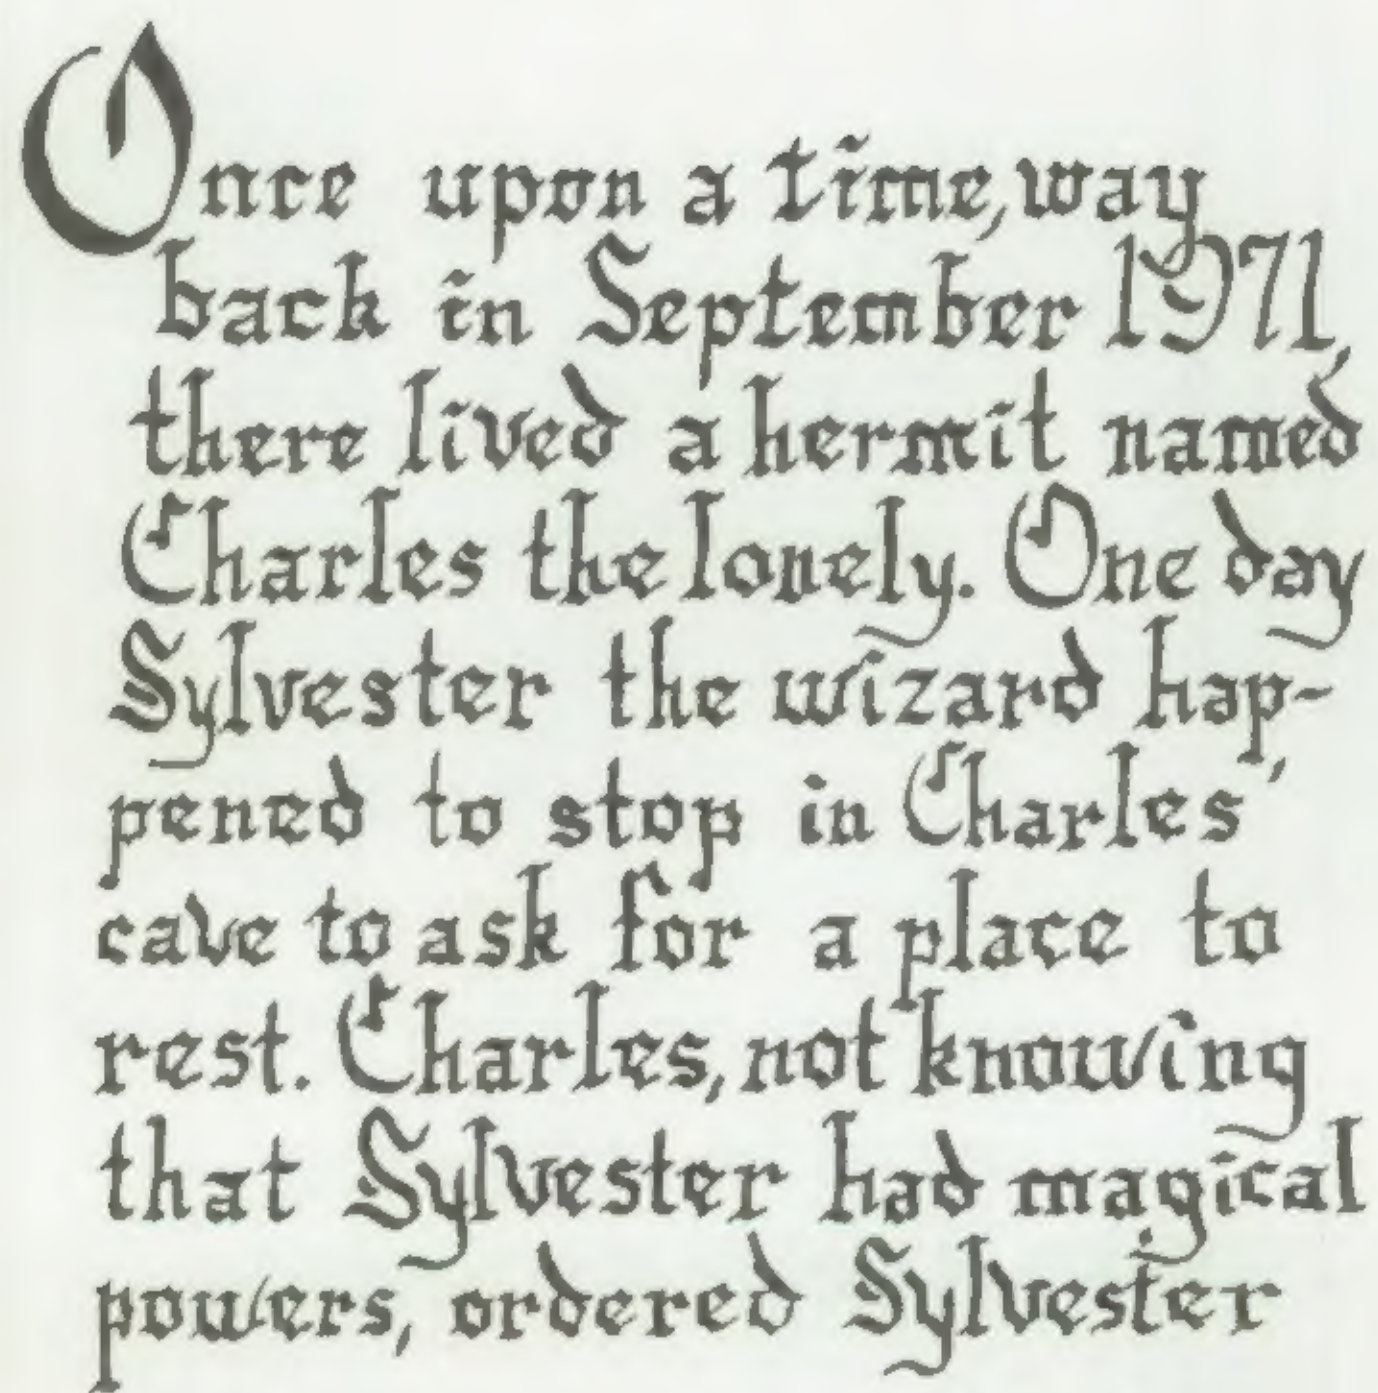 Once upon a time, way
back in September 1971,
there lived a hermit named
Charles the lonely. One day
Sylvester the wizard hap-
pened to stop in Charles'
cave to ask for a place to
rest. Charles, not knowing
that Sylvester had magical
powers, ordered Sylvester